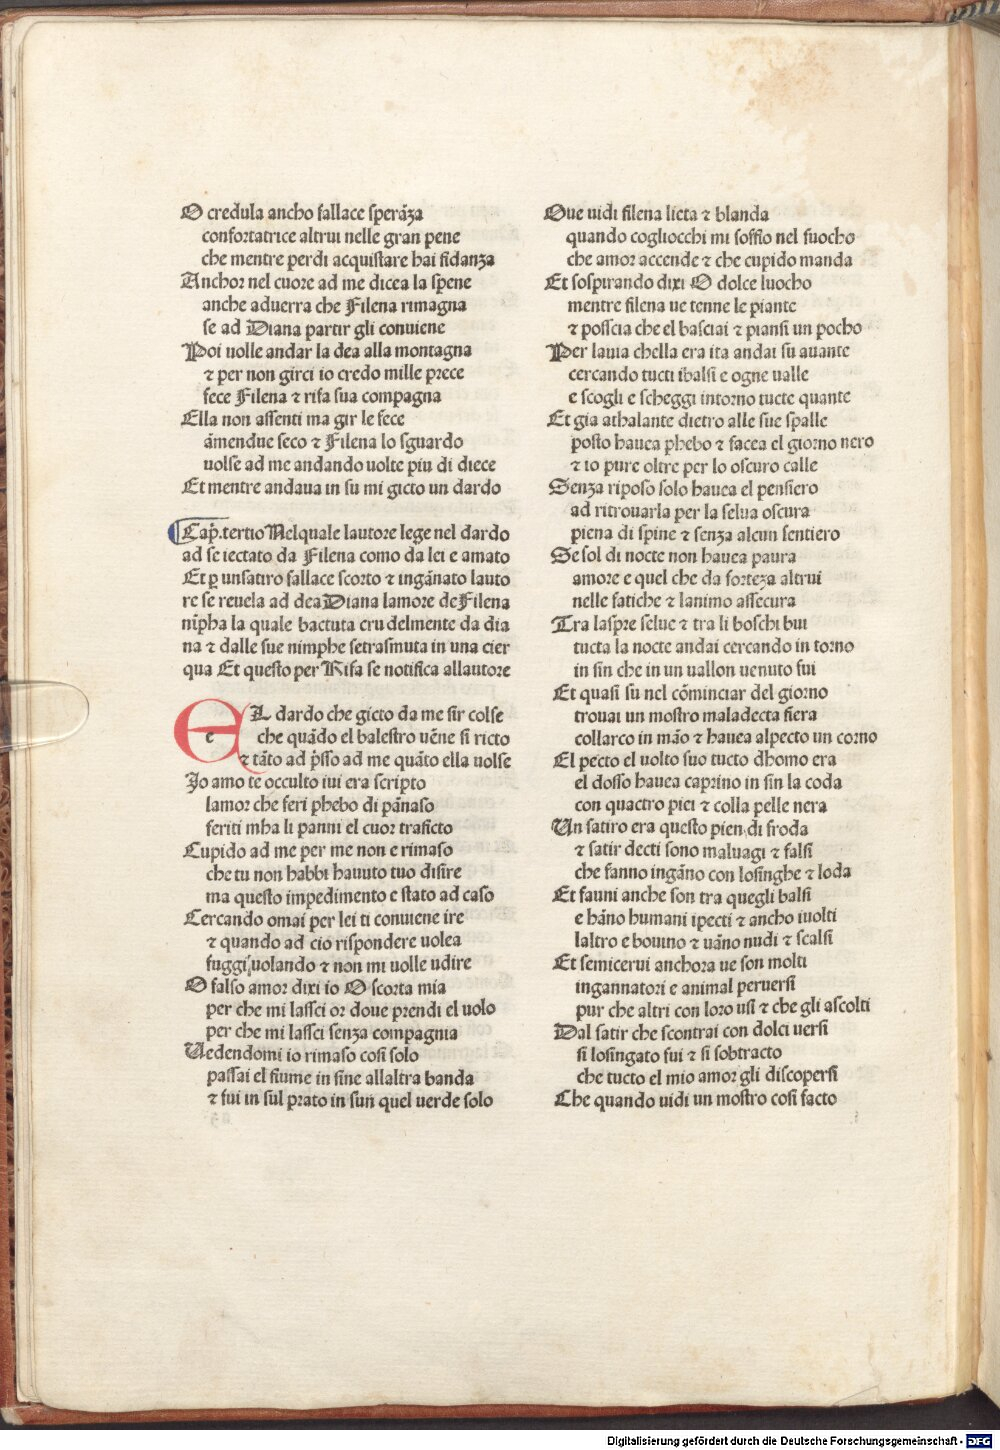 O credula ancho fallace sperāza
confortatrice altrui nelle gran pene
che mentre perdi acquistare hai fidanza
Anchor nel cuore ad me dicea la spene
anche aduerra che Filena rimagna
se ad Diana partir gli conuiene
Poi uolle andar la dea alla montagna
⁊ per non girci io credo mille prece
fece Filena ⁊ rifa sua compagna
Ella non assenti ma gir le fece
āmendue seco ⁊ Filena lo sguardo
uolse ad me andando uolte piu di diece
Et mentre andaua in su mi gicto un dardo
Cap̄. tertio Nelquale lautore lege nel dardo
ad se iectato da Filena como da lei e amato
Et ꝑ unsatiro fallace scorto ⁊ ingānato lauto
re se reuela ad dea Diana lamore de Filena
nīpha la quale bactuta cru delmente da dia
na ⁊ dalle sue nimphe setrasmuta in una cier
qua Et questo per Rifa se notifica allautore
EL dardo che gicto da me sir colse
e che quādo el balestro uēne si ricto
⁊ tāto ad p̄sso ad me quāto ella uolse
Io amo te occulto iui era scripto
lamor che feri phebo di pānaso
feriti mha li panni el cuor traficto
Cupido ad me per me non e rimaso
che tu non habbi hauuto tuo disire
ma questo impedimento e stato ad caso
Cercando omai per lei ti conuiene ire
⁊ quando ad cio rispondere uolea
fuggi uolando ⁊ non mi uolle udire
O falso amor dixi io O scorta mia
per che mi lassci or doue prendi el uolo
per che mi lassci senza compagnia
Uedendomi io rimaso cosi solo
passai el fiume in fine allaltra banda
⁊ fui in sul prato in sun quel uerde solo
Oue uidi filena lieta ⁊ blanda
quando cogliocchi mi soffio nel fuocho
che amor accende ⁊ che cupido manda
Et sospirando dixi O dolce luocho
mentre filena ue tenne le piante
⁊ posscia che el basciai ⁊ piansi un pocho
Per lauia chella era ita andai su auante
cercando tucti ibalsi e ogne ualle
e scogli e scheggi intorno tucte quante
Et gia athalante dietro alle sue spalle
posto hauea phebo ⁊ facea el giorno nero
⁊ io pure oltre per lo oscuro calle
Senza riposo solo hauea el pensiero
ad ritrouarla per la selua oscura
piena di spine ⁊ senza alcun sentiero
Se sol di nocte non hauea paura
amore e quel che da forteza altrui
nelle fatiche ⁊ lanimo assecura
Tra laspre selue ⁊ tra li boschi bui
tucta la nocte andai cercando in torno
in fin che in un uallon uenuto fui
Et quasi su nel cōminciar del giorno
trouai un mostro maladecta fiera
collarco in māo ⁊ hauea alpecto un corno
El pecto el uolto suo tucto dhomo era
el dosso hauea caprino in fin la coda
con quactro piei ⁊ colla pelle nera
Un satiro era questo pien di froda
⁊ satir decti sono maluagi ⁊ falsi
che fanno ingāno con losinghe ⁊ loda
Et fauni anche son tra quegli balsi
e hāno humani ipecti ⁊ ancho iuolti
laltro e bouino ⁊ uāno nudi ⁊ scalsi
Et semicerui anchora ue son molti
ingannatori e animal peruersi
pur che altri con loro usi ⁊ che gli ascolti
Dal satir che scontrai con dolci uersi
si losingato fui ⁊ si sobtracto
che tucto el mio amor gli discopersi
Che quando uidi un mostro cosi facto
Digitalisierung gefördert durch die Deutsche Forschungsgemeinschaft - DFG